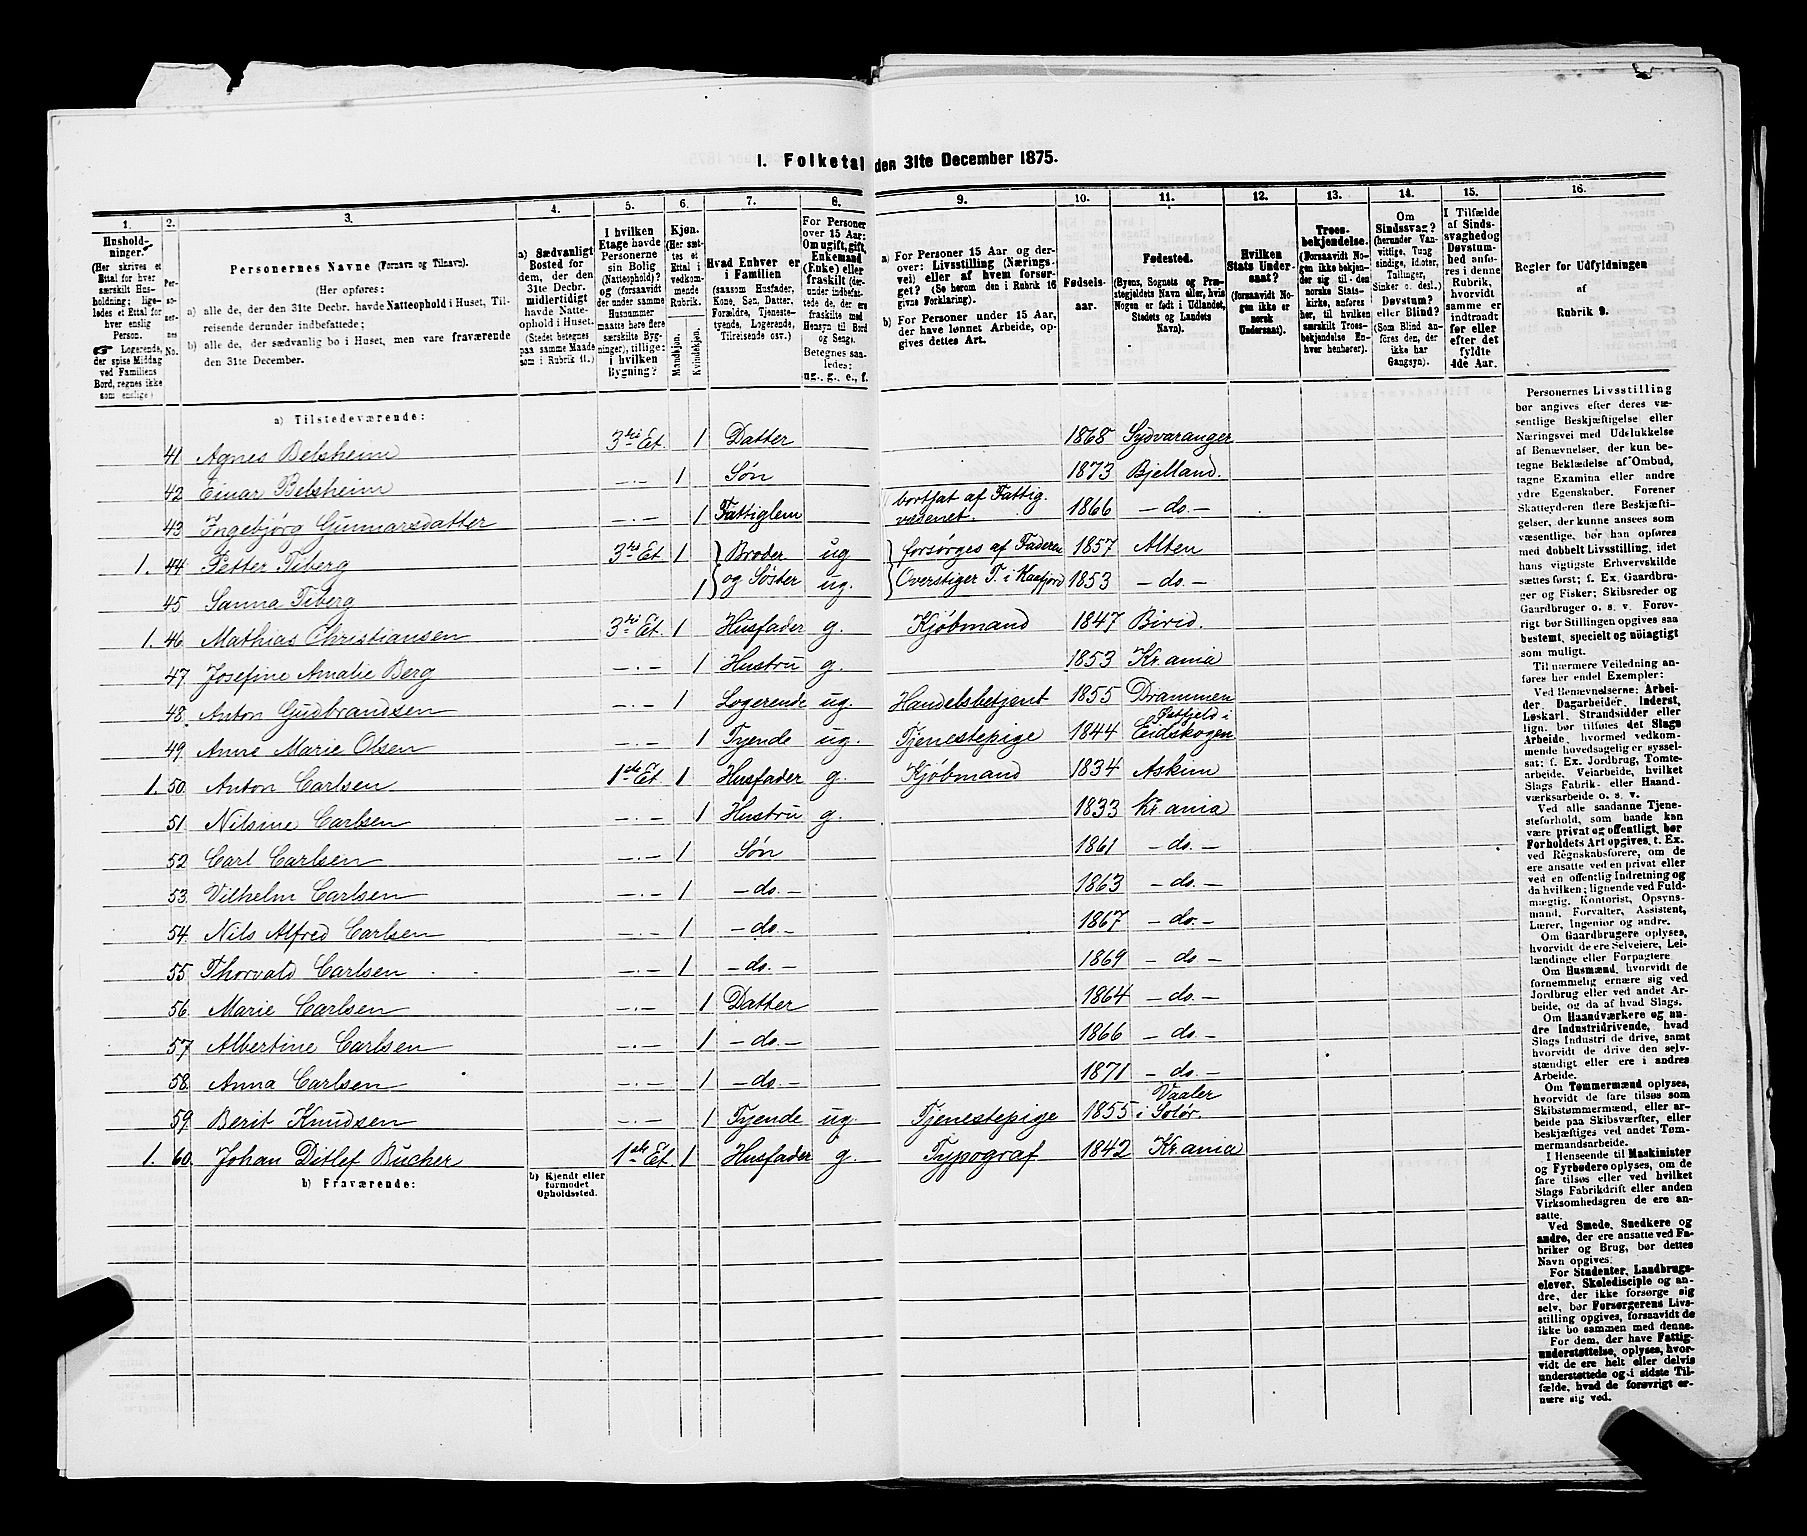 I. Folketal den 31te December 1875.
1. 2. 3. 4. 5. 6. 7. 8. 9. 10. 11. 12. 13. 14. 15. 16.
Husholdninger.
(Her skrives et
Ettal for hver
særskilt Husholdning;
ligeledes et Ettal for
hver enslig
Person.
☞ Logerende,
der spise Middag
ved Familiens
Bord, regnes ikke
som enslige)
Personernes No.
Personernes Navne (Fornavn og Tilnavn).
(Her opføres:
a) alle de, der den 31te Decbr. havde Natteophold i Huset, Tilreisende derunder indbefattede;
b) alle de, der sædvanlig bo i Huset, men vare fraværende
den 31te December.
a) Sædvanligt
Bosted for
dem, der den
31te Decbr.
midlertidigt
havde Natteophold i Huset.
(Stedet betegnes
paa samme Maade
som i Rubrik 11.)
I hvilken
Etage havde
Personerne
sin Bolig
(Natteophold)?
og (forsaavidt
der under samme
Husnummer
maatte høre flere
særskilte Bygninger), tillige:
i hvilken
Bygning?
Kjøn.
(Her sættes et
Ettal i
vedkommende
Rubrik.
Mandkjøn.
Kvindekjøn.
Hvad Enhver er
i Familien
(saasom Husfader,
Kone, Søn, Datter.
Forældre, Tjenestetyende, Logerende,
Tilreisende osv.)
For Personer
over 15 Aar:
Om ugift, gift,
Enkemand
(Enke) eller
fraskilt (derunder indbefattede de, der ere
fraskilte med
Hensyn til Bord
og Seng).
Betegnes saaledes:
ug., g., e., f.
a) For Personer 15 Aar og derover: Livsstilling (Næringsvei) eller af hvem forsørget? (Se herom den i Rubrik 16
givne Forklaring).
b) For Personer under 15 Aar,
der have lønnet Arbeide, opgives dettes Art.
Fødselsaar.
Fødested.
(Byens, Sognets og Præstegjeldets Navn eller, hvis
Nogen er født i Udlandet,
Stedets og Landets
Navn).
Hvilken
Stats Undersaat?
(forsaavidt Nogen ikke er
norsk
Undersaat).
Troesbekjendelse.
(Forsaavidt
Nogen ikke bekjender sig til den
norske Statskirke, anføres
her, til hvilken
særskilt Troesbekjendelse Enhver henhører).
Om
Sindssvag?
(herunder Vanvittige, Tungsindige, Idioter,
Tullinger,
Sinker o. desl.)
Døvstum?
eller Blind?
(Som Blind anføres den, der
ikke har
Gangsyn).
I Tilfælde
af Sindssvaghed og
Døvstumhed anføres i denne
Rubrik,
hvorvidt
samme er
indtraadt
før eller
efter det
fyldte
4de Aar.
Regler for Udfyldningen
af
Rubrik 9.
a) Tilstedeværende:
41 Agnes Belsheim 3die Et. 1 Datter 1868 Sydvaranger
42 Einar Belsheim —"— 1 Søn 1873 Bjelland.
43 Ingebjørg Gunnarsdatter —"— 1 Fattiglem bortsat af Fattigvæsenet. 1866 —do.—
1. 44 Petter Tiberg 3die Et. 1 Broder ug forsørges af Faderen 1857 Alten
45 Sanna Tiberg 1 og Søster ug. Overstiger T. i Kaafjord 1853 —do.—
1. 46 Mathias Christiansen 3die Et. 1 Husfader g. Kjøbmand 1847 Birid.
47. Josefine Amalie Berg —"— 1 Hustru g. 1853 Kr.ania
48. Anton Gudbrandsen —"— 1 Logerende ug. Handelsbetjent 1855 Drammen
49 Anne Marie Olsen —"— 1 Tyende ug. Tjenestepige 1844 Eidskogen
1. 50. Anton Carlsen 1ste Et. 1 Husfader g. Kjøbmand 1834 Askim
51. Nilsine Carlsen —"— 1 Hustru g. 1833 Kr.ania
52 Carl Carlsen —"— 1 Søn 1861 —do.—
53. Vilhelm Carlsen —"— 1 —do.— 1863 —do.—
54. Nils Alfred Carlsen —"— 1 —do.— 1867 —do.—
55. Thorvald Carlsen —"— 1 —do.— 1869 —do—
56. Marie Carlsen —"— 1 Datter 1864 —do.—
57. Albertine Carlsen —"— 1 —do.— 1866 —do.—
58. Anna Carlsen —"— 1 —do.— 1871 —do.—
59. Berit Knudsen —"— 1 Tyende ug. Tjenestepige 1855 Vaaler i Solør.
1. 60. Johan Ditlef Bucher 1ste Et. 1 Husfader g. Typograf 1842 Kr.ania
b) Fraværende:
b) Kjendt eller
formodet
Opholdssted.
Personernes Livsstilling
bør angives efter deres væsentlige Beskjæftigelse eller
Næringsvei med Udelukkelse
af Benævnelser, der kun betegne Beklædelse af Ombud,
tagne Examina eller andre
ydre Egenskaber. Forener
Skatteyderen flere Beskjæftigelser, der kunne ansees som
væsentlige, bør han opføres
med dobbelt Livsstilling, idet
hans vigtigste Erhvervskilde
sættes først; f. Ex. Gaardbruger og Fisker; Skibsreder og
Gaardbruger o. s. v. Forøvrigt bør Stillingen opgives saa
bestemt, specielt og nøiagtigt
som muligt.
Til nærmere Veiledning anføres her endel Exempler:
Ved Benævnelserne: Arbeider, Dagarbeider, Inderst,
Løskarl, Strandsidder eller
lign. bør tilføres det Slags
Arbeide, hvormed vedkommende hovedsagelig er sysselsat; f. Ex. Jordbrug, Tomtearbeide, Veiarbeide, hvilket
Slags Fabrik- eller Haandværksarbeide o. s. v.
Ved alle saadanne Tjenesteforhold, som baade kan
være privat og offentligt, bør
Forholdets Art opgives, t. Ex.
ved Regnskabsførere, om de
ere ansatte ved en privat eller
ved en offentlig Indretning og
da hvilken; lignende ved Fuldmægtig, Kontorist, Opsynsmand, Forvalter, Assistent,
Lærer, Ingeniør og andre.
Om Gaardbrugere oplyses,
hvorvidt de ere Selveiere, Leilændinge eller Forpagtere
Om Husmænd, hvorvidt de
fornemmelig ernære sig ved
Jordbrug eller ved andet Arbeide, og da af hvad Slags.
Om Haandværkere og andre Industridrivende, hvad
Slags Industri de drive, samt
hvorvidt de drive den selvstændigt eller ere i andres
Arbeide.
Om Tømmermænd oplyses,
hvorvidt de fare tilsøs som
Skibstømmermænd, eller arbeide paa Skibsværfter, eller
beskjæftiges ved andet Tømmermandsarbeide.
I Henseende til Maskinister
og Fyrbødere oplyses, om de
fare tilsøs eller ved hvilket
Slags Fabrikdrift eller anden
Virksomhedsgren de ere ansatte.
Ved Smede, Snedkere og
andre, der ere ansatte ved Fabriker og Brug, bør dettes
Navn opgives.
For Studenter, Landbrugselever, Skoledisciple og andre, der ikke forsørge sig
selv, bør Forsørgerens Livsstilling opgives, forsaavidt de
ikke bo sammen med denne.
For dem, der have Fattigunderstøttelse, oplyses, hvorvidt de ere helt eller delvis
understøttede og i sidste Tilfælde, hvad de forøvrigt ernære sig ved.